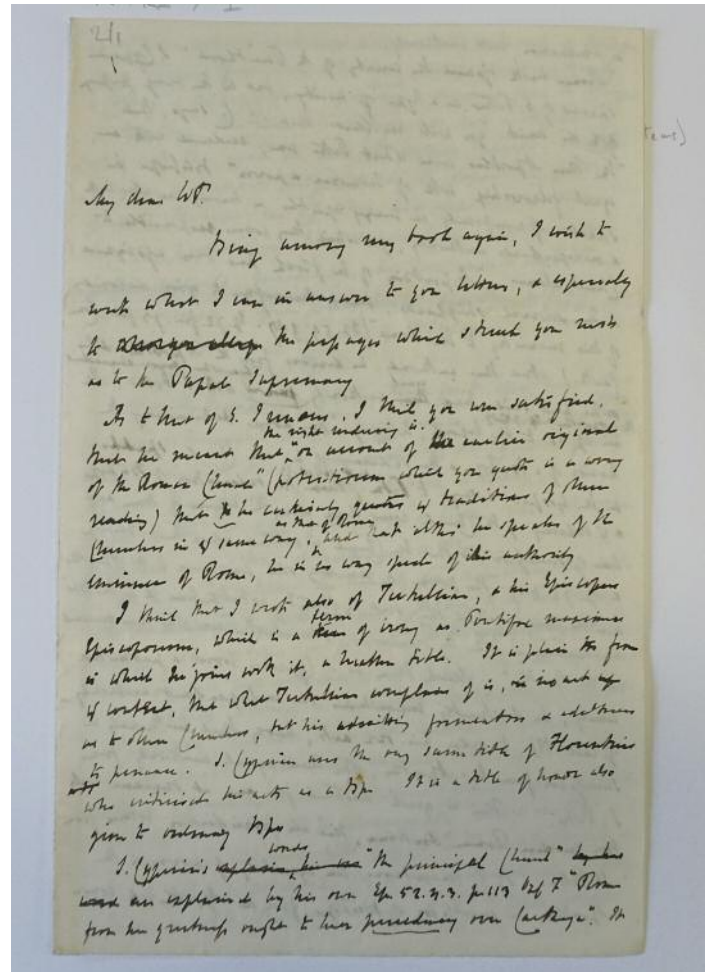 2/1
My dear W.P.
Being among my books again, I wish to
write what I can in answer to your letters, & especially
to the passages which struck you most
as to the Papal Supremacy
As to that of S. Irenaeus, I think you were satisfied,
the right rendering is
that he meant that, "on account of the earlier original
of the Roman Church" (potentiorem which you quote is a wrong
reading) that he quotes traditions of other
as that of Rome
Churches in same way, and that altho' he speaks of the
eminence of Rome, he in no way speaks of its authority
I think that I wrote also of Tertullian, & his Episcopus
term
Episcoporum, which is a of irony as Pontifex maximus
is which he joins with it, a heathen title. It is plain from
context, that what Tertullian complains of is, no act
as to other Churches, but his admitting fornicators & adulterers
to penance. S. Cyprian uses the very same title of Florentius
who criticised his acts as a Bp. It is a title of honor also
given to ordinary Bps
words
S. Cyprian's "the principal Church"
are explained by his own Ep. 52. n. 3. p. 113 "Rome
from her greatness ought to have precedency over Carthage". It